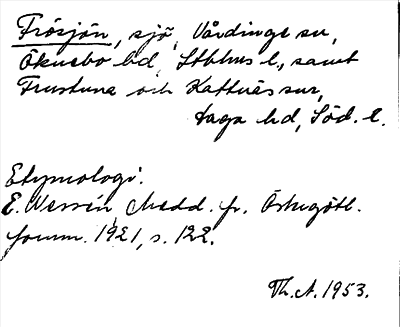 Frösjön, sjö, Vårdinge sn,
Öknebo hd, Stblms l., samt
Frustuna och Kattnäs snr,
Daga hd, Söd. l.
Etymologi:
E. Wessén, Medd. fr. Östergötl.
fornm. 1921, s. 122.
Th. A. 1953.